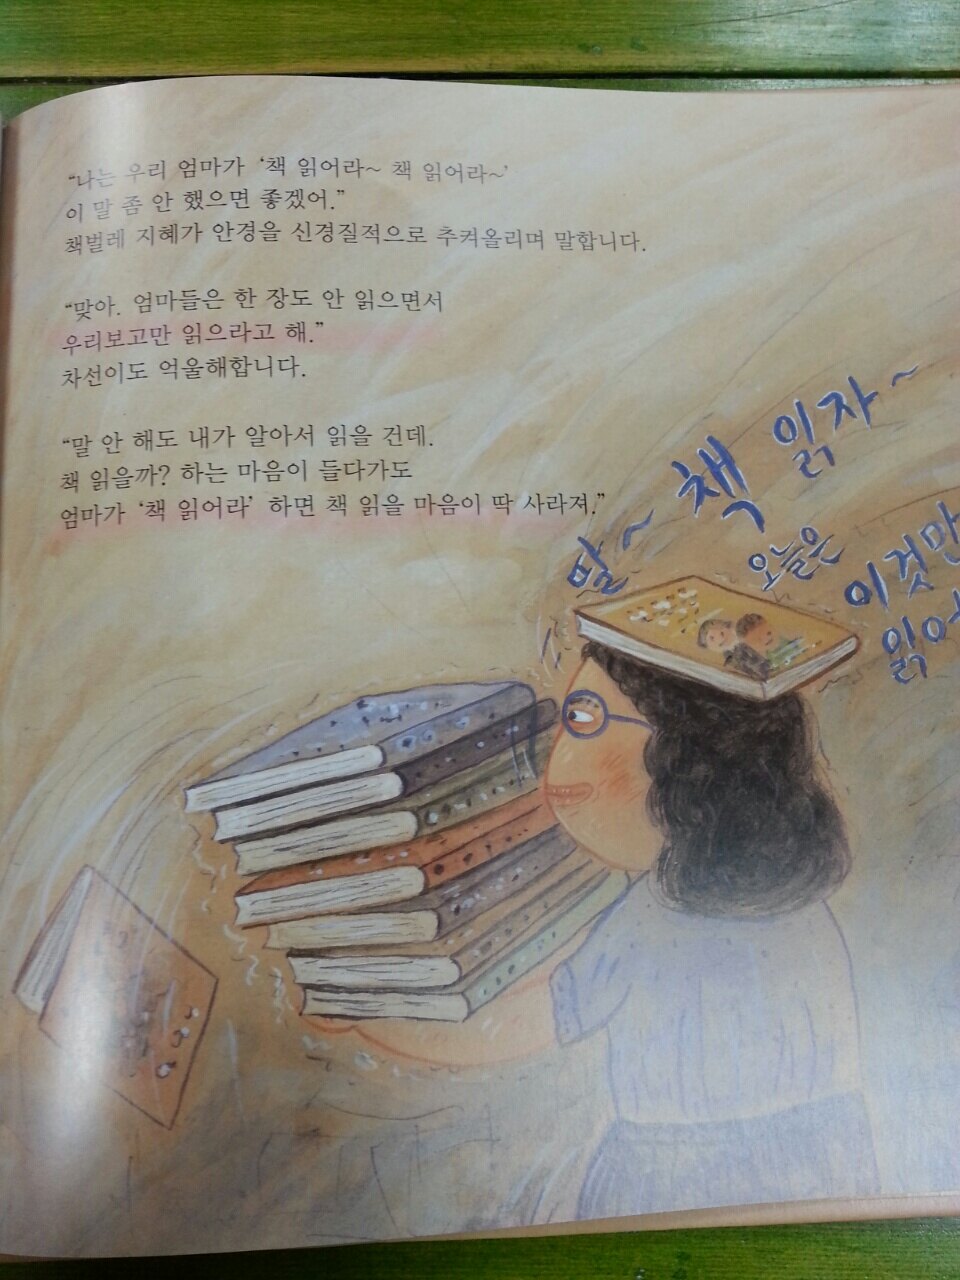 “나는 우리 엄마가 ‘책 읽어라~ 책 읽어라~’
이 말 좀 안 했으면 좋겠어.”
책벌레 지혜가 안경을 신경질적으로 추켜올리며 말합니다.
“맞아. 엄마들은 한 장도 안 읽으면서
우리보고만 읽으라고 해.”
차선이도 억울해합니다.
“말 안 해도 내가 알아서 읽을 건데.
책 읽을까? 하는 마음이 들다가도
엄마가 ‘책 읽어라’ 하면 책 읽을 마음이 딱 사라져.”
딸~ 책 읽자~
오늘은 이것만
읽어